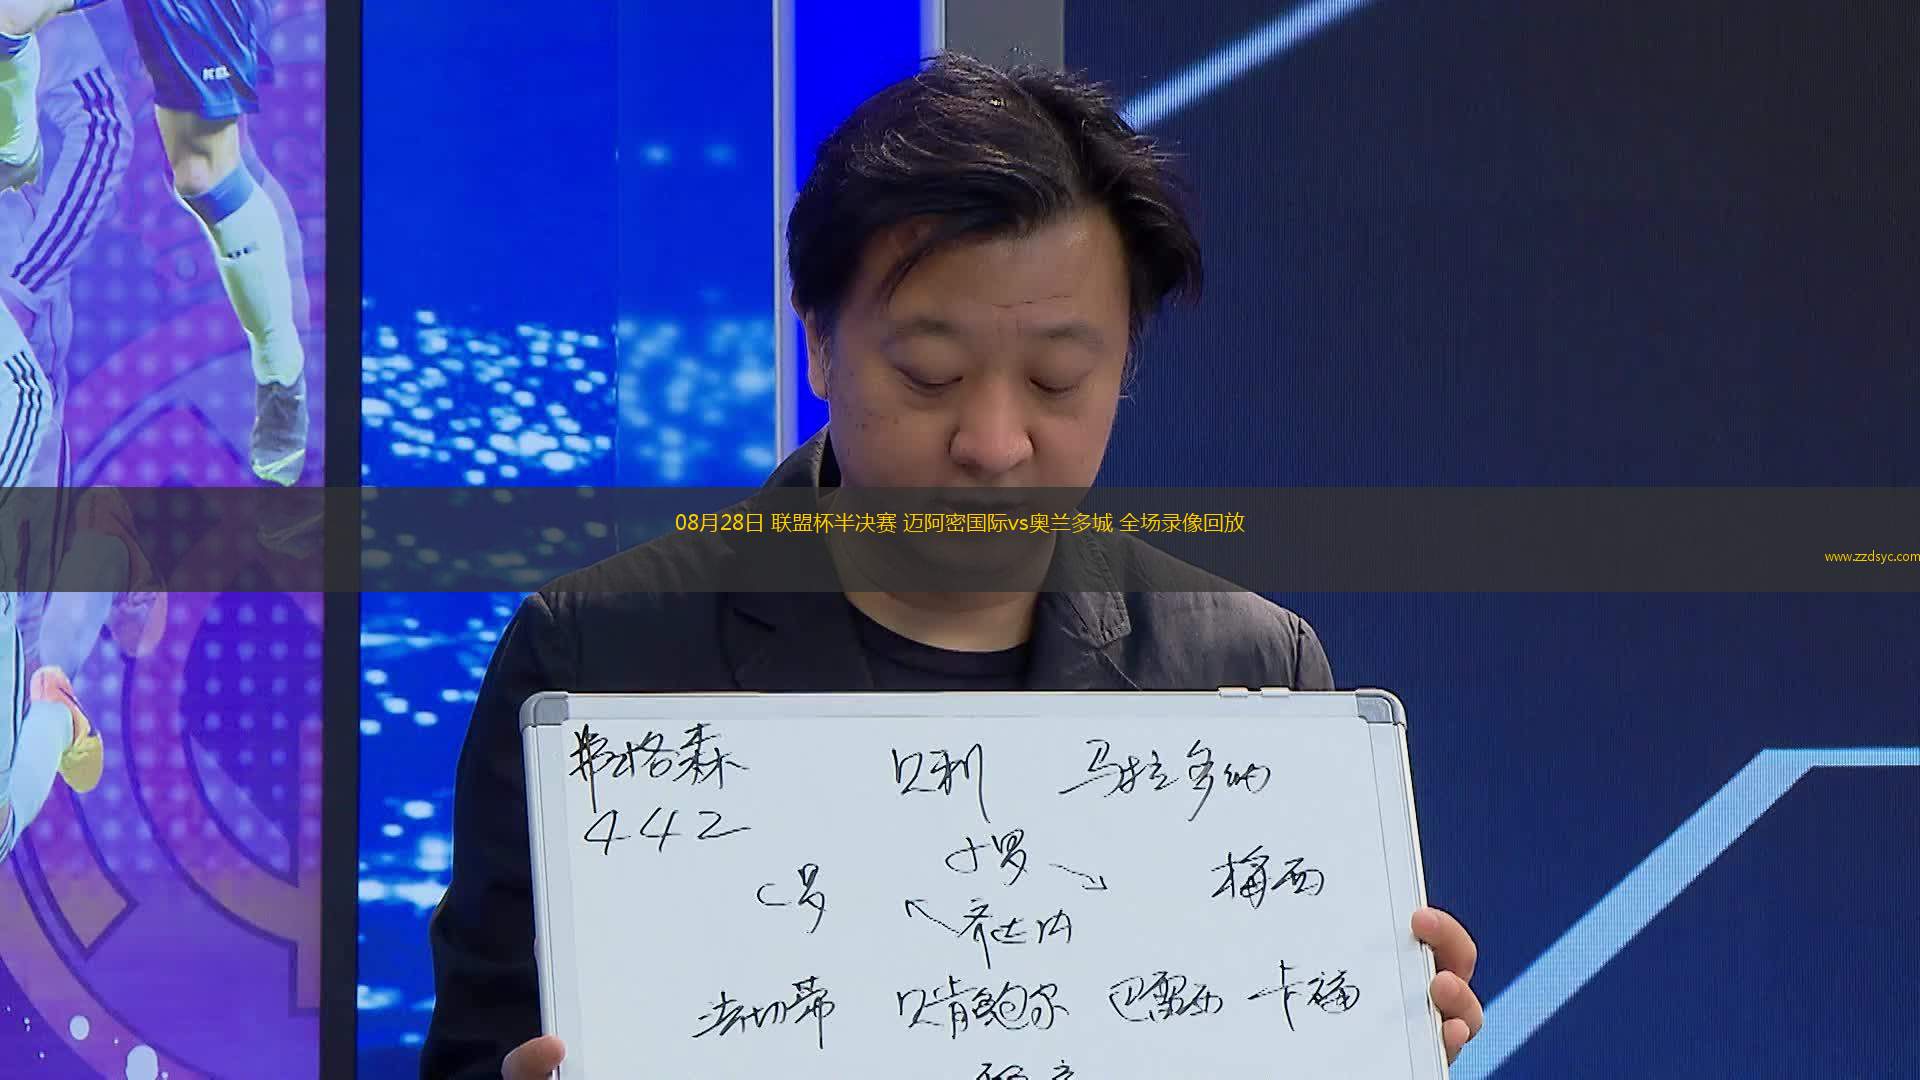 08月28日 联盟杯半决赛 迈阿密国际vs奥兰多城 全场录像回放
www.zzdsyc.com
弗格森 贝利 马拉多纳
442
小罗
C罗 梅西
齐达内
法切蒂 贝肯鲍尔 巴雷西 卡福